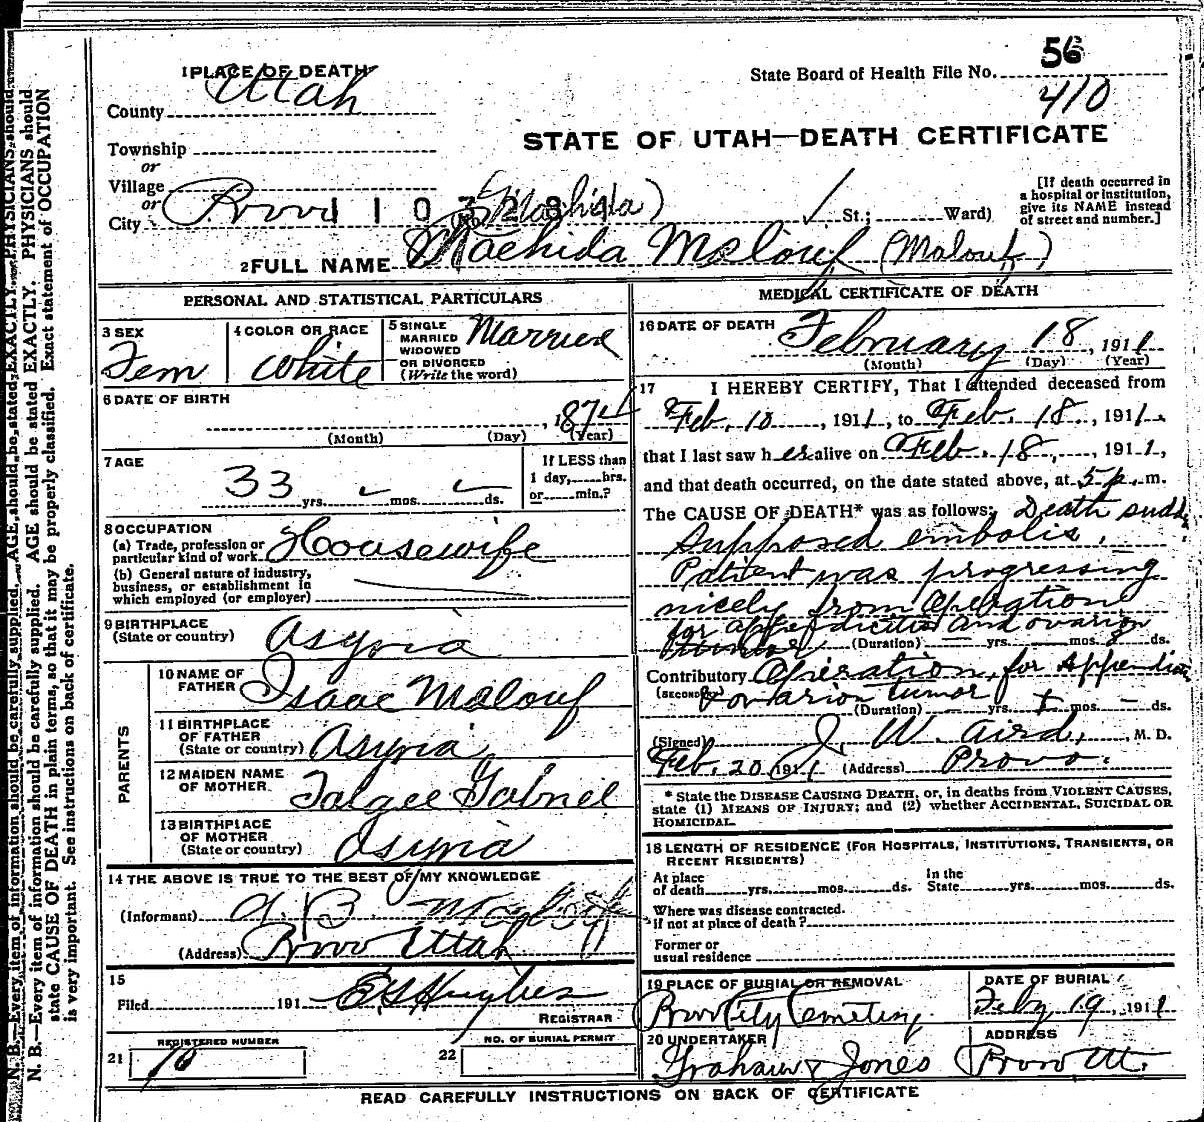 1 PLACE OF DEATH
State Board of Health File No. 56
410
County Utah
Township
or
Village
or
City Provo 1103284
STATE OF UTAH—DEATH CERTIFICATE
St.; Ward)
[If death occurred in
a hospital or institution,
give its NAME instead
of street and number.]
(Mashida)
2 FULL NAME Machida Malouf (Malouf)
PERSONAL AND STATISTICAL PARTICULARS
3 SEX
Fem
4 COLOR OR RACE
White
5 SINGLE
MARRIED
WIDOWED
OR DIVORCED
(Write the word)
Married
6 DATE OF BIRTH
, 187
(Month) (Day) (Year)
7 AGE
33 yrs. mos. ds.
If LESS than
1 day, hrs.
or min.?
8 OCCUPATION
(a) Trade, profession or
particular kind of work. Housewife
(b) General nature of industry,
business, or establishment in
which employed (or employer)
9 BIRTHPLACE
(State or country) Asyria
PARENTS
10 NAME OF
FATHER Isaac Malouf
11 BIRTHPLACE
OF FATHER
(State or country) Asyria
12 MAIDEN NAME
OF MOTHER Gabriel
13 BIRTHPLACE
OF MOTHER
(State or country) Asyria
14 THE ABOVE IS TRUE TO THE BEST OF MY KNOWLEDGE
(Informant)
(Address) Provo Utah
15
Filed 191 E S Hughes
REGISTRAR
21 REGISTERED NUMBER
22 NO. OF BURIAL PERMIT
MEDICAL CERTIFICATE OF DEATH
16 DATE OF DEATH February 18, 1911
(Month) (Day) (Year)
17 I HEREBY CERTIFY, That I attended deceased from
Feb. 10, 1911, to Feb. 18, 1911,
that I last saw her alive on Feb. 18, 1911,
and that death occurred, on the date stated above, at 5 p. m.
The CAUSE OF DEATH* was as follows: Death sudd
Supposed embolis.
Patient was progressing
nicely from Operation
for appendicitis and ovarion
(Duration) yrs. mos. 8 ds.
Contributory Operation for Appendici
(SECONDARY) ovarion tumor
(Duration) yrs. mos. ds.
(Signed) J. W. Aird, M. D.
Feb. 20, 1911 (Address) Provo.
* State the DISEASE CAUSING DEATH, or, in deaths from VIOLENT CAUSES,
state (1) MEANS OF INJURY; and (2) whether ACCIDENTAL, SUICIDAL OR
HOMICIDAL.
18 LENGTH OF RESIDENCE (FOR HOSPITALS, INSTITUTIONS, TRANSIENTS, OR
RECENT RESIDENTS)
At place
of death yrs. mos. ds.
In the
State yrs. mos. ds.
Where was disease contracted.
if not at place of death?
Former or
usual residence
19 PLACE OF BURIAL OR REMOVAL
Provo City Cemetery.
DATE OF BURIAL
Feby 19, 1911
20 UNDERTAKER
Graham & Jones
ADDRESS
Provo Ut.
READ CAREFULLY INSTRUCTIONS ON BACK OF CERTIFICATE
N. B.—Every item of information should be carefully supplied. AGE should be stated EXACTLY. PHYSICIANS should
N. B.—Every item of information should be carefully supplied. AGE should be stated EXACTLY. PHYSICIANS should
state CAUSE OF DEATH in plain terms, so that it may be properly classified. Exact statement of OCCUPATION
is very important. See instructions on back of certificate.